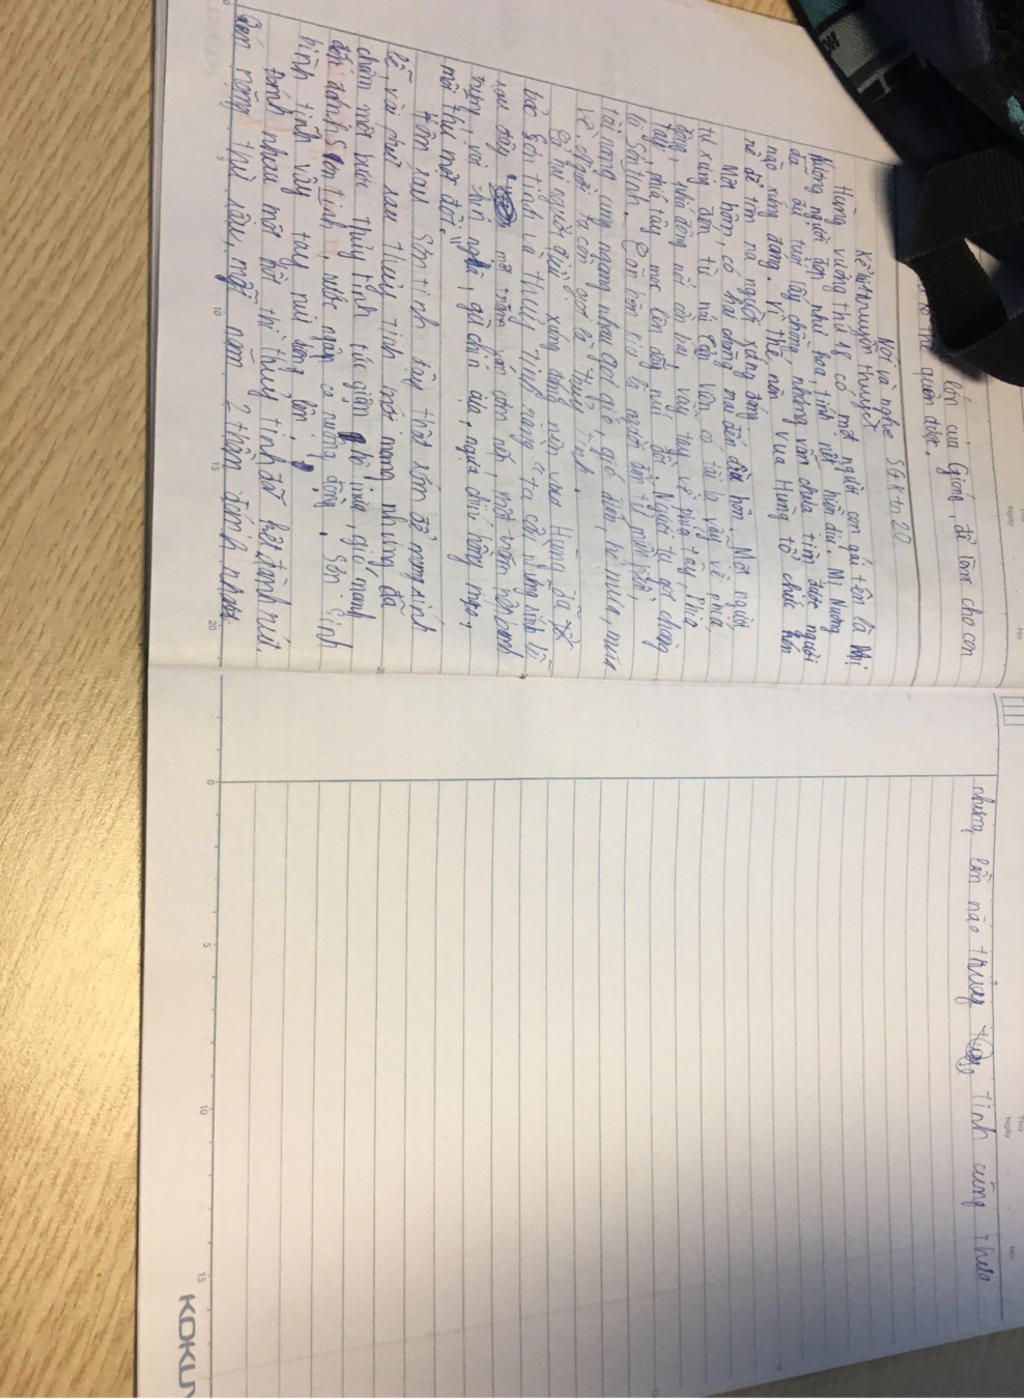 lớn của Gióng, để làm cho con
quên được.
Nói và nghe SGK tr20
Kể lại truyện truyền thuyết
Hùng vương thứ 18 có một người con gái tên là Mị
Nương người đẹp như hoa, tính nết hiền dịu. Mị Nương
đã đủ tuổi lấy chồng, nhưng vẫn chưa tìm được người
nào xứng đáng. Vì thế, nên vua Hùng tổ chức hôn
để tìm ra người xứng đáng.
Một hôm, có hai chàng trai đến hôn. Một người
từ vùng đến từ núi vẫn có tài lạ vẫy về phía
đông, phía đông nổi cồn bãi, vẫy tay về phía tây, phía
tây, phía tây mọc lên dãy núi đồi. Người ta gọi chàng
là Sơn tinh. Còn hôn là người đến từ miền biển,
tài năng cũng ngang nhau gọi gió, gió đến, hô mưa, mưa
về. người ta còn gọi là Thuỷ Tinh.
Cả hai người đều xứng đáng nên vua Hùng đã
bảo Sơn tinh và Thuỷ Tinh rằng "ta cần những sính lễ
sau đây một trăm ván cơm nếp, một trăm nệp bánh
trưng, voi chín ngà, gà chín cựa, ngựa chín hồng mao,
mỗi thứ một đôi."
Hôm sau Sơn tinh dậy thật sớm để mang sính
lễ, vài phút sau Thuỷ tinh mới mang nhưng đã
chậm một bước Thủy tinh tức giận hô mưa, gió mang
đến đánh Sơn tinh, nước ngập cả ruộng đồng. Sơn tinh
bình tĩnh vẫy tay núi dâng lên.
Đánh nhau một hồi thì thuỷ tinh đã kết đánh rút.
Oán nặng thù sâu, mỗi năm 2 thần đánh nhau
nhưng lần nào thủy Tinh cũng thua
0
5
10
15
20
0
5
10
15
Thứ
Ngày
No.
KOKUY